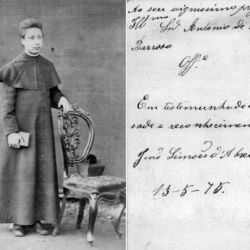 Ao seu dignissimo pr
Ill.mo
Snr Antonio de
Barroso
Off.e
Em testemunho de
sade e reconhecimen
João Simões d'Abre
13-5-75.